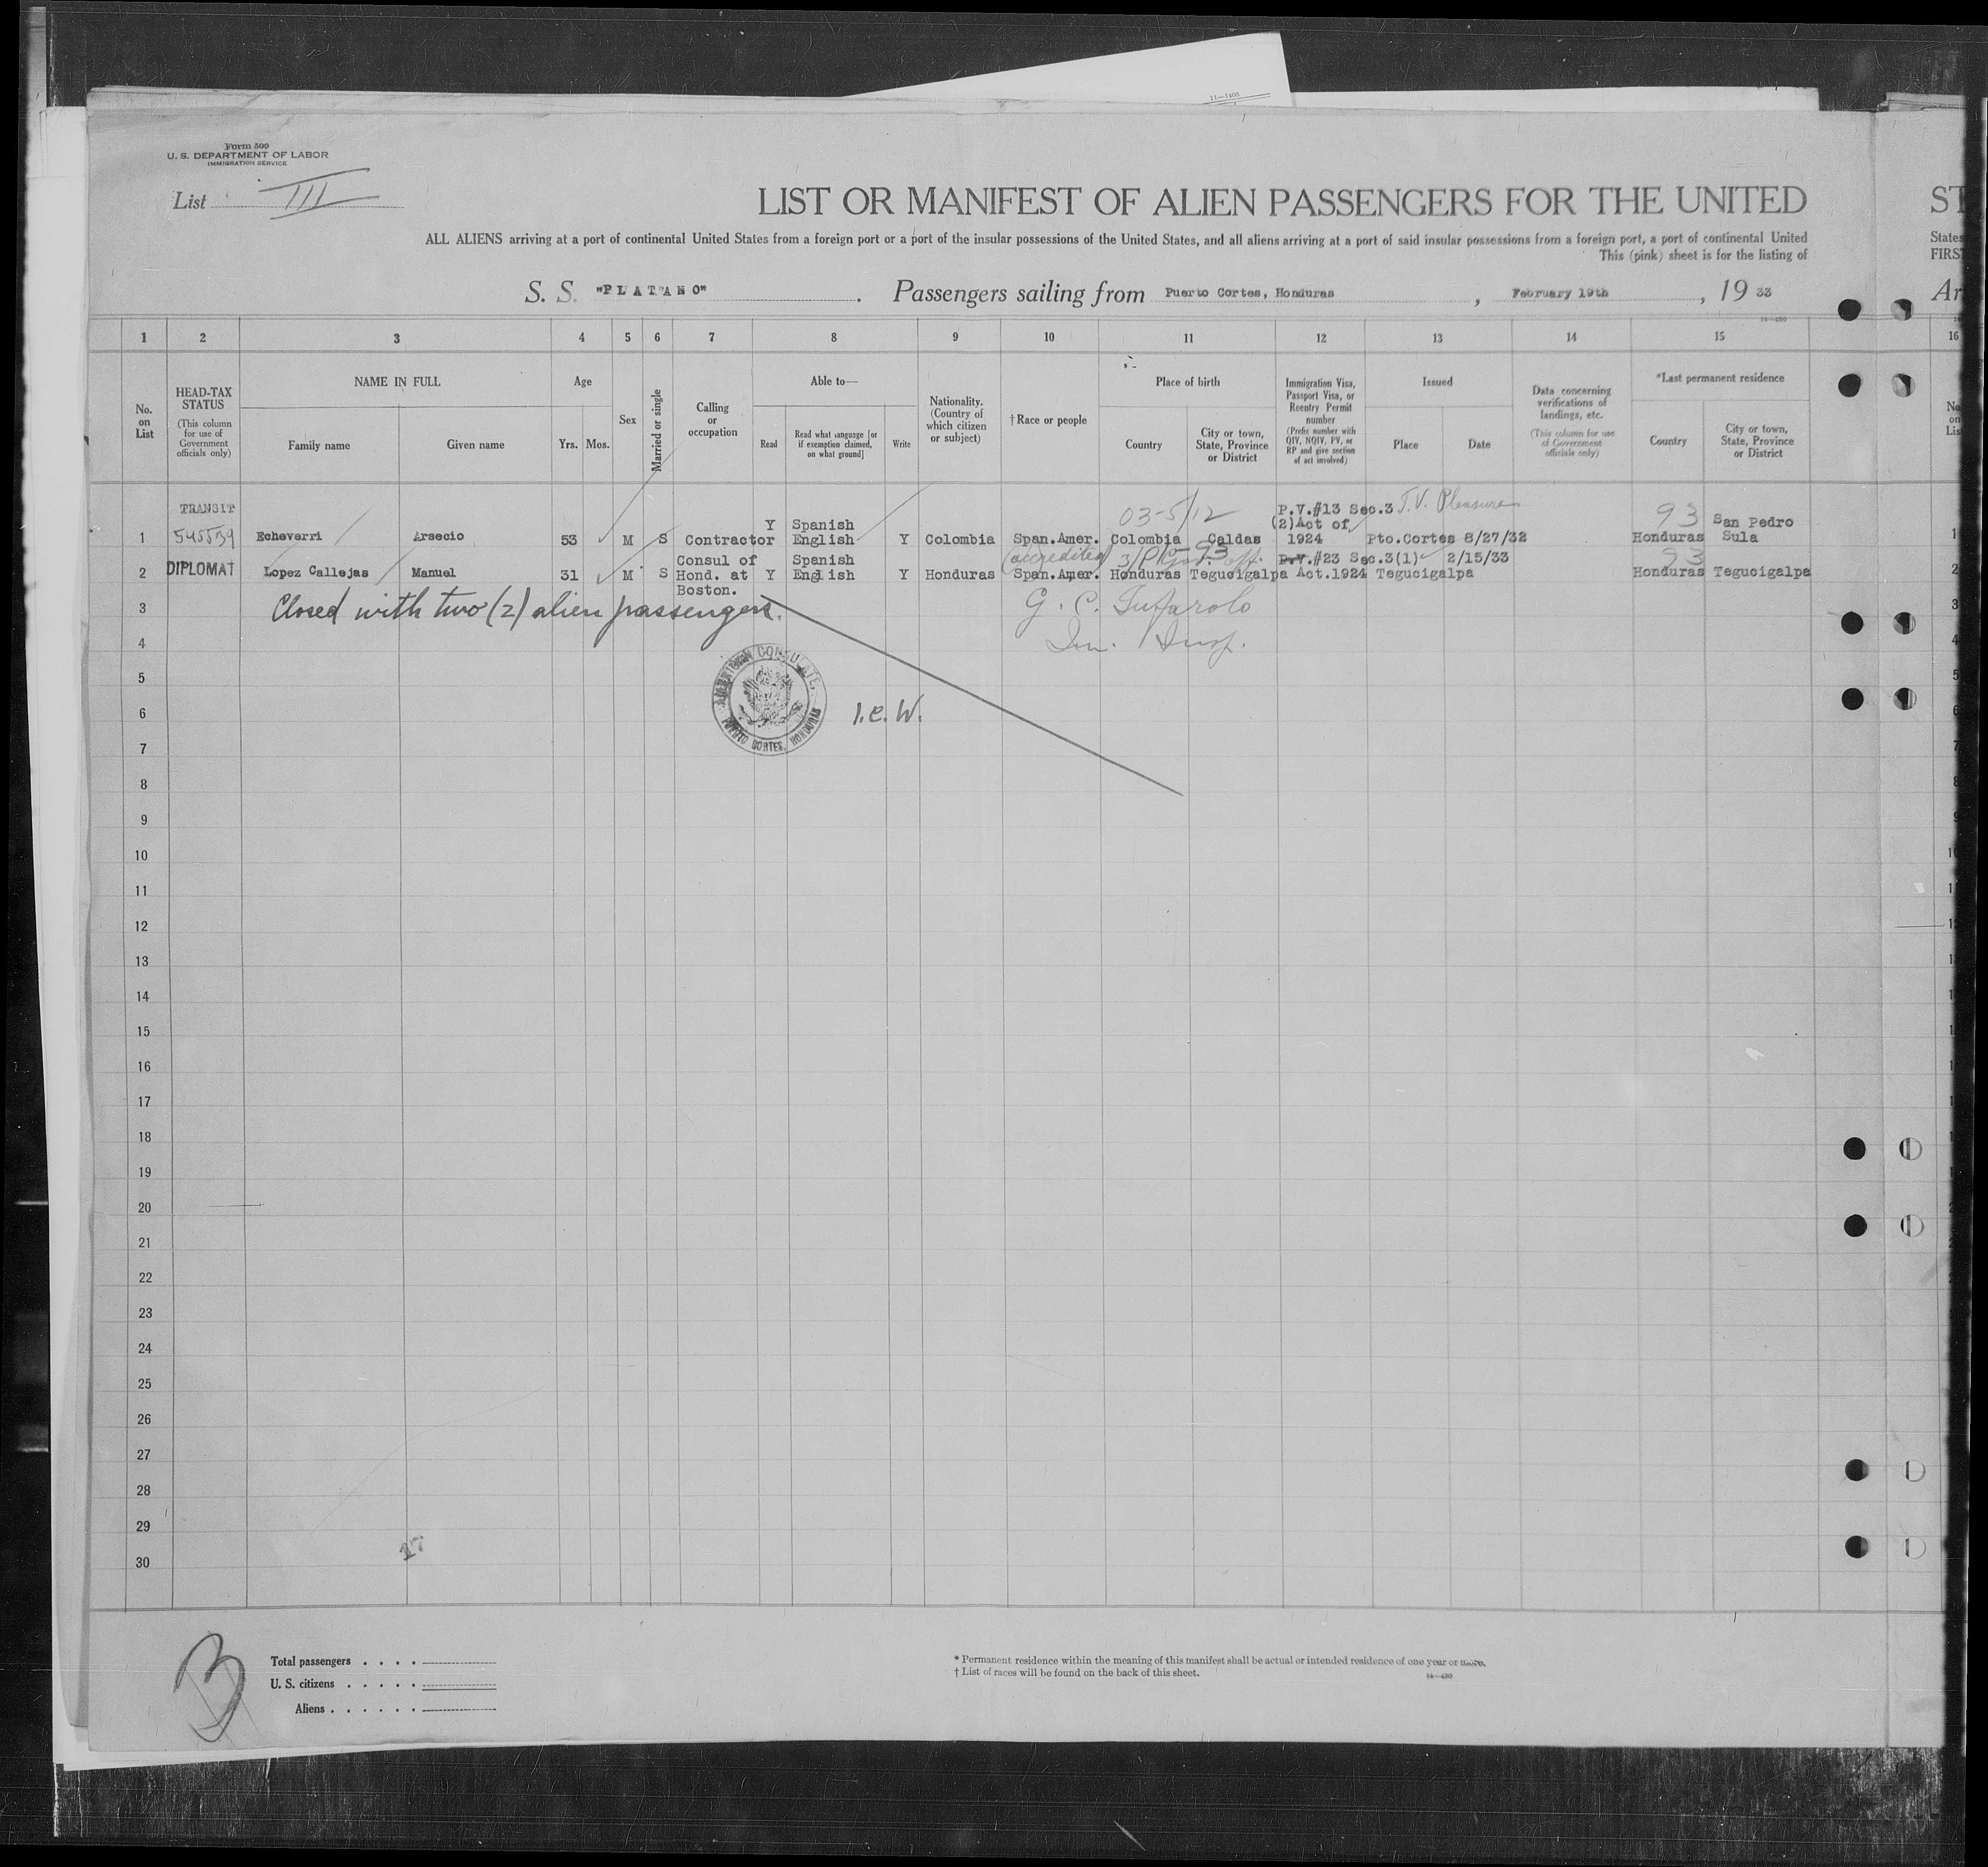 11—1406
Form 500
U. S. DEPARTMENT OF LABOR
IMMIGRATION SERVICE
List III
LIST OR MANIFEST OF ALIEN PASSENGERS FOR THE UNITED
ST
ALL ALIENS arriving at a port of continental United States from a foreign port or a port of the insular possessions of the United States, and all aliens arriving at a port of said insular possessions from a foreign port, a port of continental United
States
This (pink) sheet is for the listing of
FIRST
S. S. "PLATANO" . Passengers sailing from Puerto Cortes, Honduras , February 19th , 19 33
Ar
1 2 3 4 5 6 7 8 9 10 11 12 13 14 15 16
No. on List
HEAD-TAX STATUS
(This column for use of Government officials only)
NAME IN FULL
Family name
Given name
Age
Yrs. Mos.
Sex
Married or single
Calling or occupation
Able to—
Read
Read what language [or if exemption claimed, on what ground]
Write
Nationality. (Country of which citizen or subject)
† Race or people
Place of birth
Country
City or town, State, Province or District
Immigration Visa, Passport Visa, or Reentry Permit number
(Prefix number with QIV, NQIV, PV, or RP and give section of act involved)
Issued
Place
Date
Data concerning verifications of landings, etc.
(This column for use of Government officials only)
*Last permanent residence
Country
City or town, State, Province or District
No. on List
TRANSIT
03-5/12 P.V.#13 Sec.3 T.V. Pleasure 93 San Pedro
Y Spanish (2)Act of
1 545539 Echeverri Arsecio 53 M S Contractor English Y Colombia Span.Amer. Colombia Caldas 1924 Pto.Cortes 8/27/32 Honduras Sula 1
Consul of Spanish (accredited 93 P.V.#23 Sec.3(1) 2/15/33 93
2 DIPLOMAT Lopez Callejas Manuel 31 M S Hond. at Y English Y Honduras Span.Amer. Honduras Tegucigalpa Act.1924 Tegucigalpa Honduras Tegucigalpa 2
Boston.
3 Closed with two (2) alien passengers. G. C. Tufarolo 3
4 Im. Insp. 4
AMERICAN CONSULATE,
PUERTO CORTES, HONDURAS
I.C.W.
5
6
7
8
9
10
11
12
13
14
15
16
17
18
19
20
21
22
23
24
25
26
27
28
29
30
17
3
Total passengers . . . .
U. S. citizens . . . . .
Aliens . . . . . .
* Permanent residence within the meaning of this manifest shall be actual or intended residence of one year or more.
† List of races will be found on the back of this sheet.
14—430